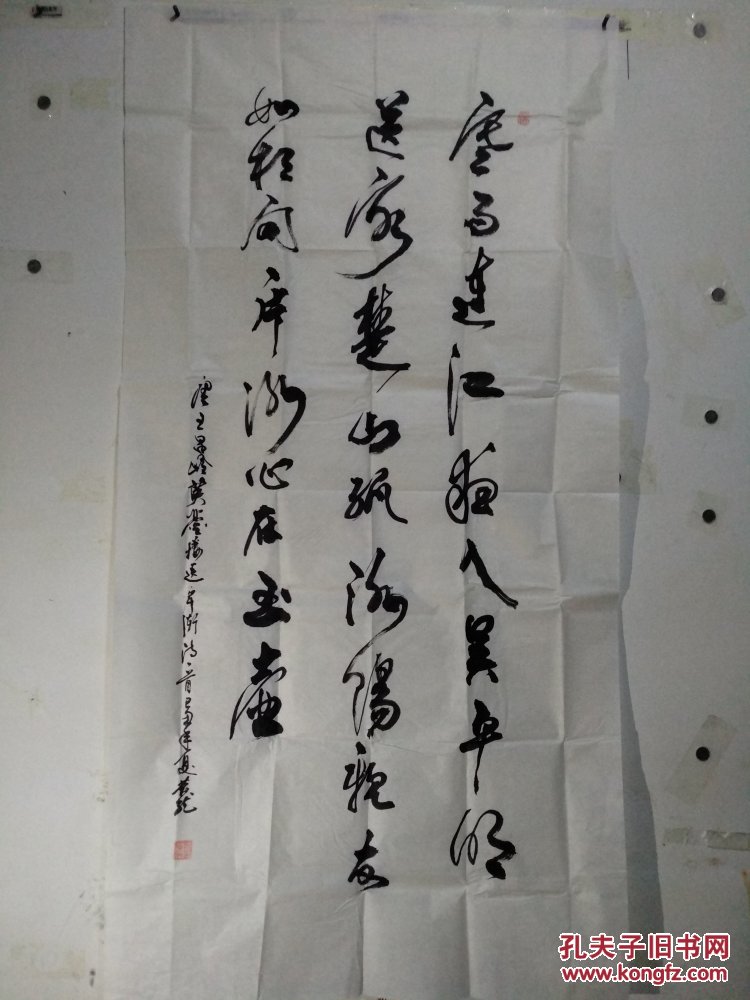 寒雨連江夜入吴平明
送客楚山孤洛陽親友
如相问一片冰心在玉壺
唐王昌龄芙蓉楼送辛渐诗一首年夏
孔夫子旧书网
www.kongfz.com